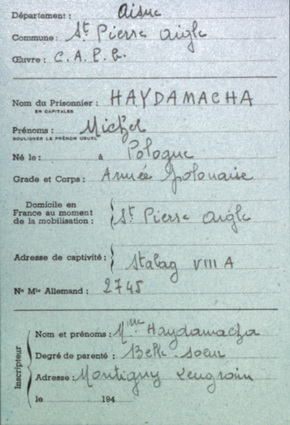 Département : Aisne
Commune : St Pierre Aigle
Œuvre : C. A. P. G.
Nom du Prisonnier : HAYDAMACHA
EN CAPITALES
Prénoms : Michel
SOULIGNER LE PRÉNOM USUEL
Né le : à Pologne
Grade et Corps : Armée Polonaise
Domicile en
France au moment
de la mobilisation : St Pierre Aigle
Adresse de captivité : Stalag VIII A
No Mle Allemand : 2745
Inscripteur
Nom et prénoms : Mme Haydamacha
Degré de parenté : Belle-soeur
Adresse : Montigny Lengrain
le 194